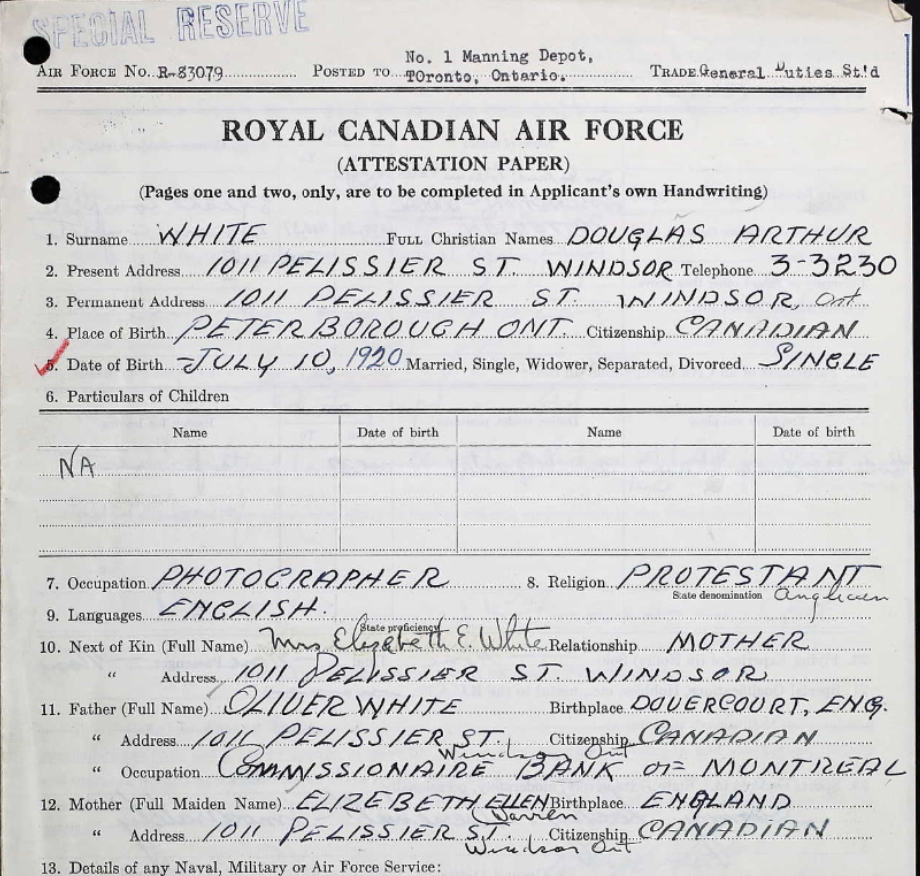 SPECIAL RESERVE
No. 1 Manning Depot,
AIR FORCE No. R-83079 POSTED TO TOronto, Ontario. TRADE General Duties St'd
ROYAL CANADIAN AIR FORCE
(ATTESTATION PAPER)
(Pages one and two, only, are to be completed in Applicant's own Handwriting)
1. Surname WHITE FULL Christian Names DOUGLAS ARTHUR
2. Present Address 1011 PELISSIER ST. WINDSOR Telephone 3-3230
3. Permanent Address 1011 PELISSIER ST. WINDSOR, Ont
4. Place of Birth PETERBOROUGH ONT. Citizenship CANADIAN
5. Date of Birth JULY 10, 1920 Married, Single, Widower, Separated, Divorced SINGLE
6. Particulars of Children
Name Date of birth Name Date of birth
NA
7. Occupation PHOTOGRAPHER 8. Religion PROTESTANT
State denomination Anglican
9. Languages ENGLISH.
State proficiency
10. Next of Kin (Full Name) Mrs Elizabeth E. White Relationship MOTHER
" Address 1011 PELISSIER ST. WINDSOR
11. Father (Full Name) OLIVER WHITE Birthplace DOVERCOURT, ENG.
" Address 1011 PELISSIER ST. Citizenship CANADIAN
Windsor Ont
" Occupation COMMISSIONAIRE BANK OF MONTREAL
12. Mother (Full Maiden Name) ELIZEBETH ELLEN Birthplace ENGLAND
Warren
" Address 1011 PELISSIER ST. Citizenship CANADIAN
Windsor Ont
13. Details of any Naval, Military or Air Force Service: